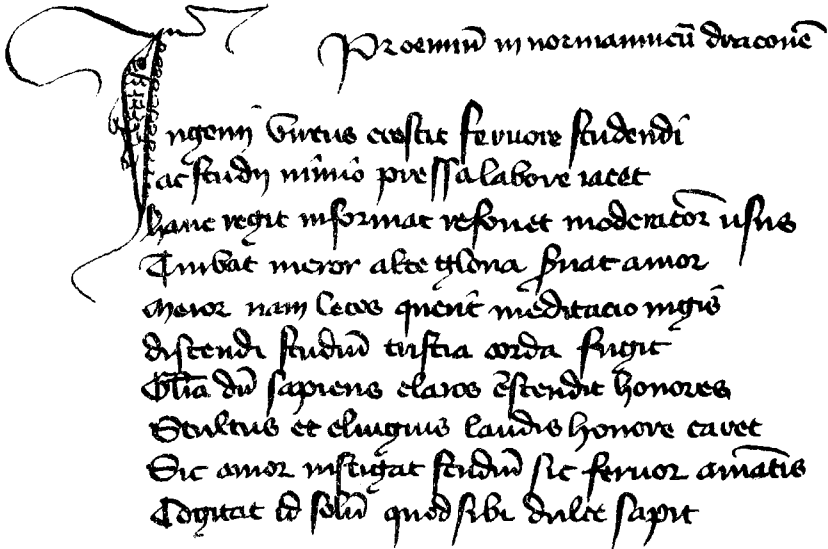 Proemiū in normannicū draconē
Ingenii virtus crescit feruore studendi
ac studii nimio pressa labore iacet
hanc regit informat refouet moderatior usus
Turbat meror alit gloria seruat amor
Meror nam letos querit meditacio
discendi studiū tristia corda fugit
Gl̄ia dū sapiens claros cōscendit honores
Stultus et elinguis laudis honore caret
Sic amor instigat studiū sic feruor amātis
Cogitat id solū quod sibi dulce sapit